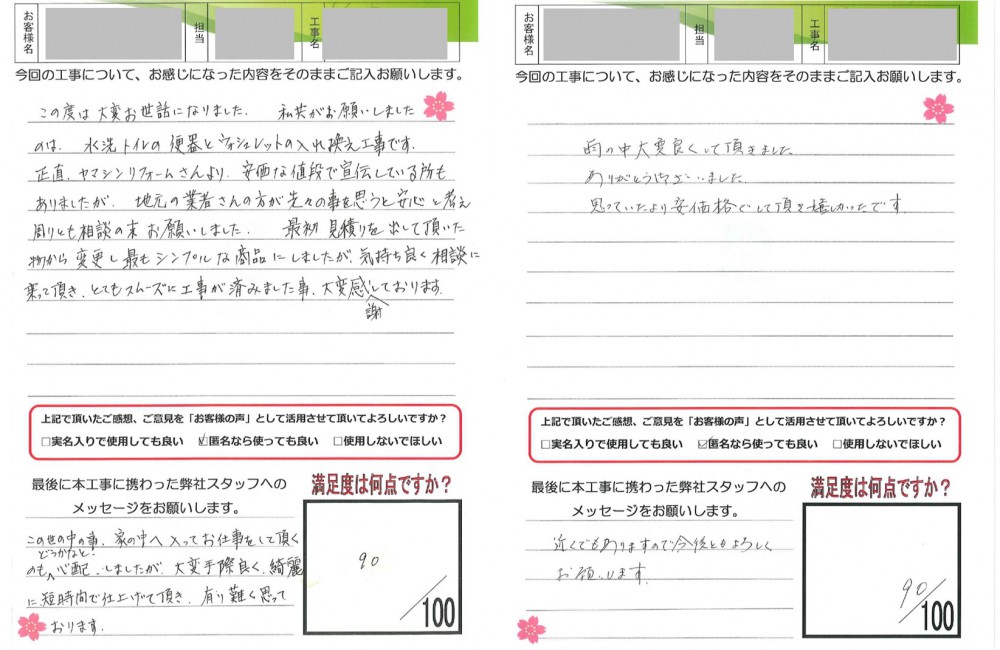 お客様名
担当
工事名
今回の工事について、お感じになった内容をそのままご記入お願いします。
この度は大変お世話になりました。 私共がお願いしました
のは、水洗トイレの便器とウォシュレットの入れ換え工事です。
正直、ヤマシンリフォームさんより、安価な値段で宣伝している所も
ありましたが、地元の業者さんの方が先々の事を思うと安心と考え
周りとも相談の末お願いしました。 最初見積りを出して頂いた
物から変更し最もシンプルな商品にしましたが、気持ち良く相談に
乗って頂き、とてもスムーズに工事が済みました事、大変感謝しております。
上記で頂いたご感想、ご意見を「お客様の声」として活用させて頂いてよろしいですか？
□実名入りで使用しても良い ☑匿名なら使っても良い □使用しないでほしい
最後に本工事に携わった弊社スタッフへの
メッセージをお願いします。
この世の中の事、家の中へ入ってお仕事をして頂く
のもどうかなと！心配しましたが、大変手際良く、綺麗
に短時間で仕上げて頂き、有り難く思って
おります。
満足度は何点ですか？
90
/100
お客様名
担当
工事名
今回の工事について、お感じになった内容をそのままご記入お願いします。
雨の中大変良くして頂きました
ありがとうございました
思っていたより安価格でして頂き嬉しかったです
上記で頂いたご感想、ご意見を「お客様の声」として活用させて頂いてよろしいですか？
□実名入りで使用しても良い ☑匿名なら使っても良い □使用しないでほしい
最後に本工事に携わった弊社スタッフへの
メッセージをお願いします。
近くでもありますので今後ともよろしく
お願いします
満足度は何点ですか？
90
/100